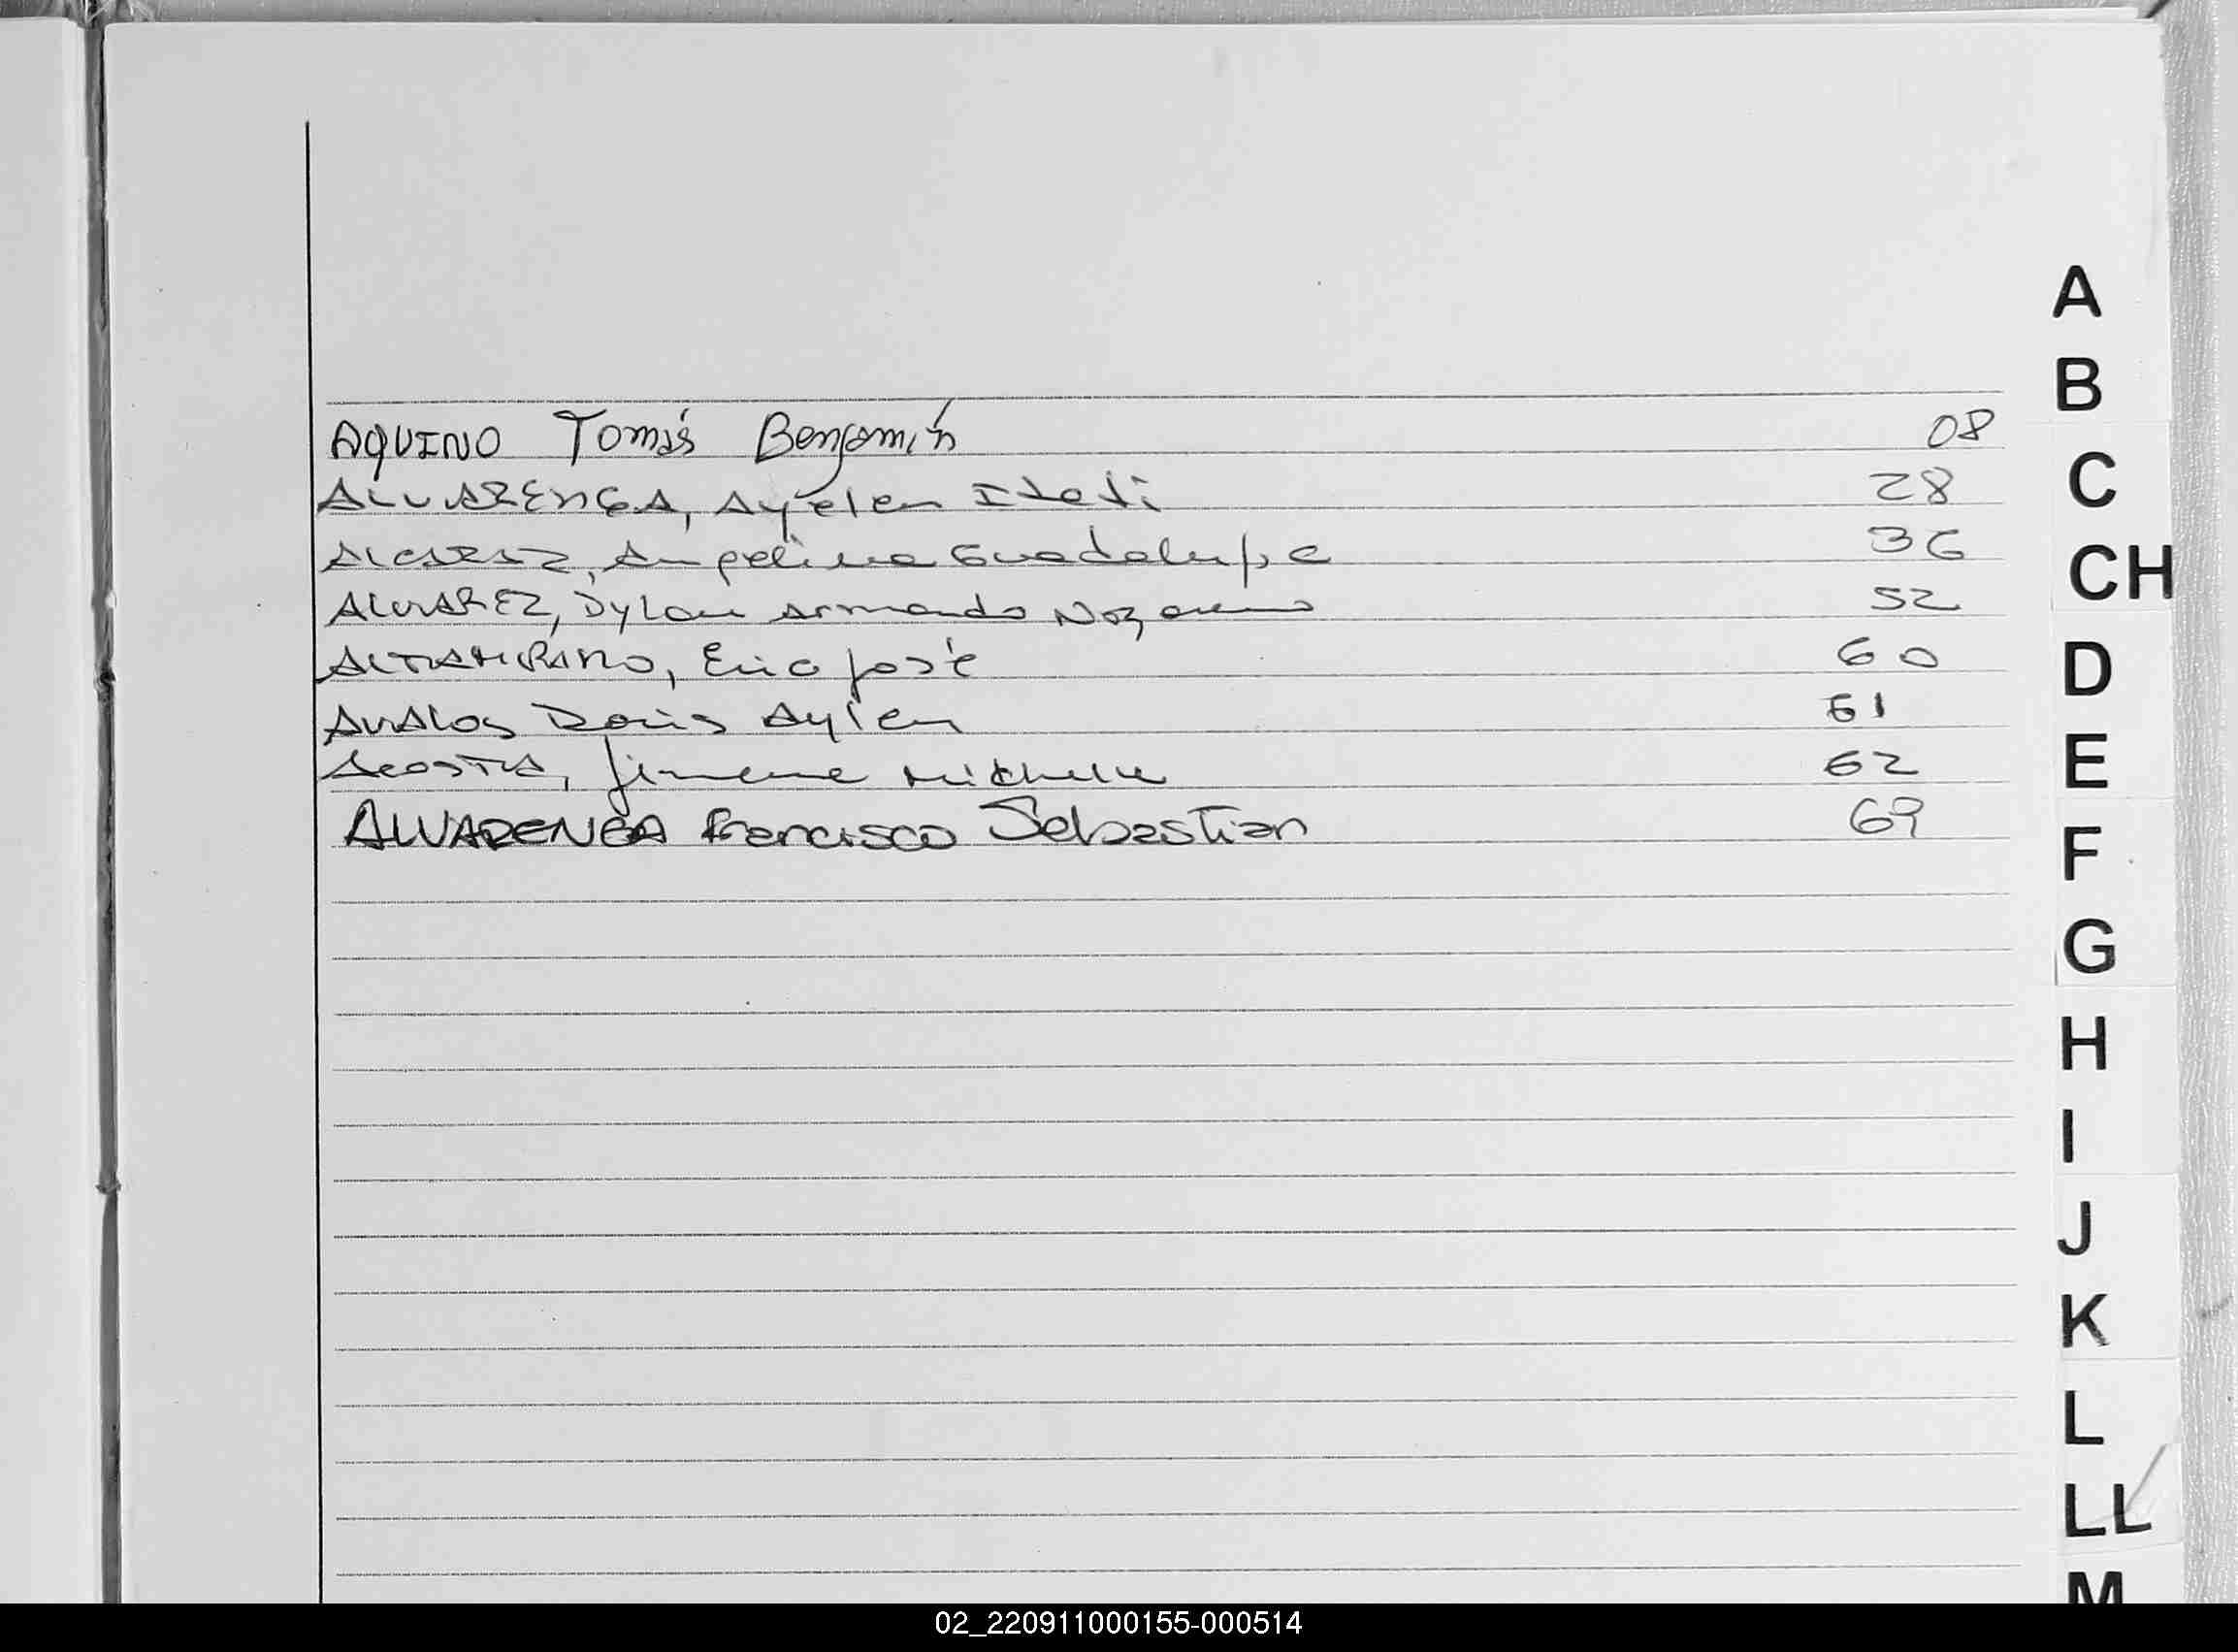 AQUINO Tomás Benjamín 08
ALVARENGA, Ayelen Itatí 28
Alcaraz, Angelina Guadalupe 36
ALVAREZ, Dylan Armando Nazareno 52
ALTAMIRANO, Eric José 60
AVALOS Doris Aylen 61
Acosta, Jimena Michelle 62
ALVARENGA Francisco Sebastian 69
A
B
C
CH
D
E
F
G
H
I
J
K
L
LL
M
02_220911000155-000514